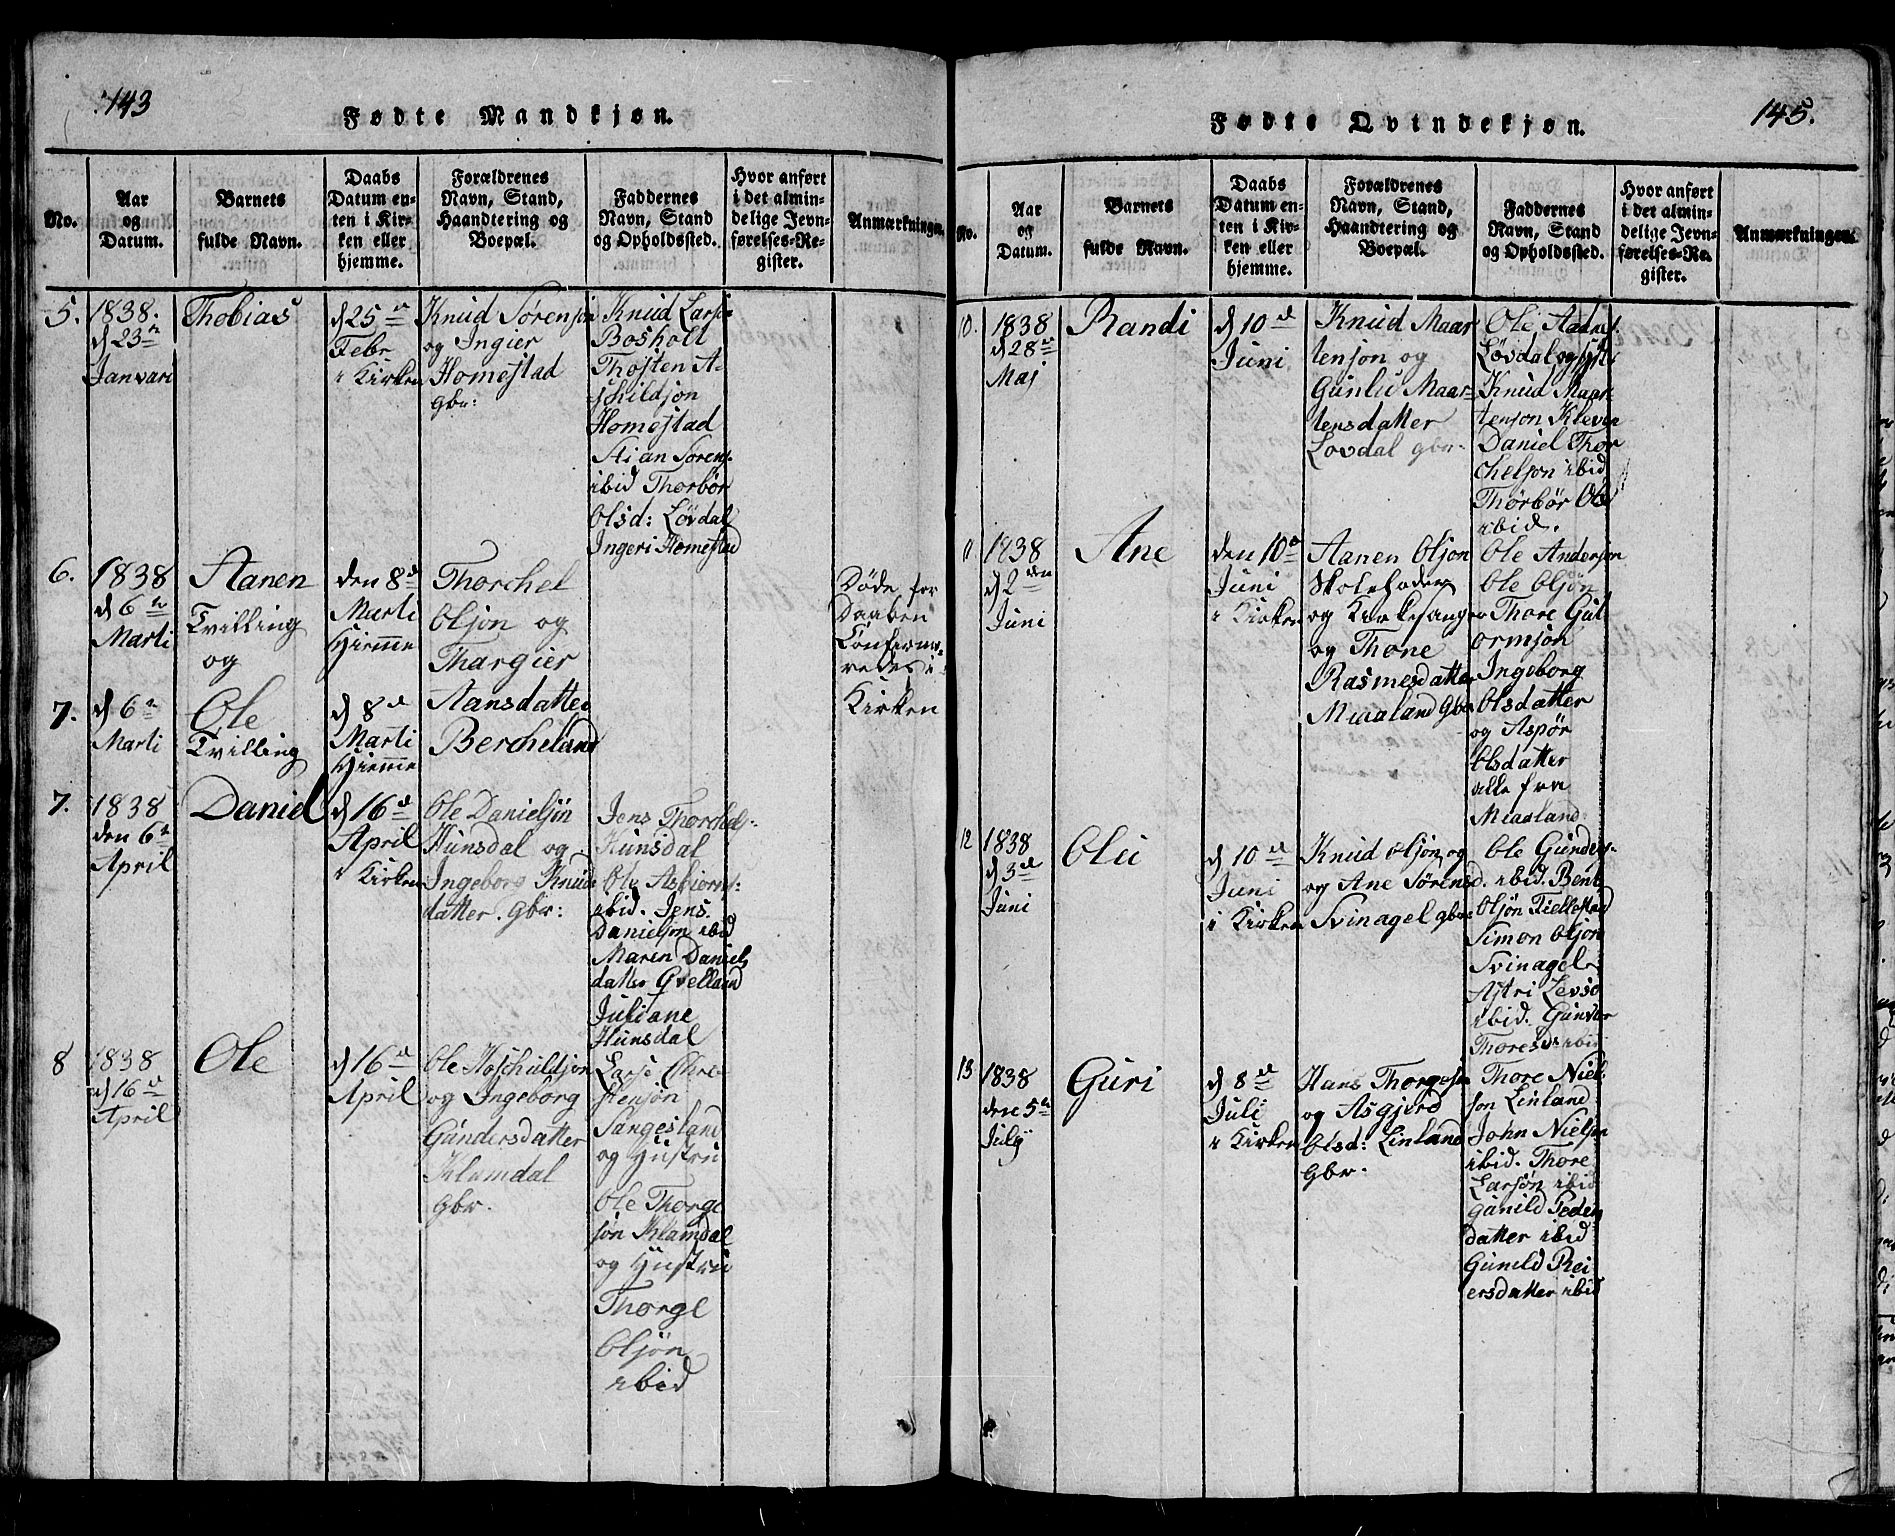 143
Fødte Mandkjøn.
No.
Aar
og
Datum.
Barnets
fulde Navn.
Daabs
Datum en-
ten i Kir-
ken eller
hjemme.
Forældrenes
Navn, Stand,
Haandtering og
Boepæl.
Faddernes
Navn, Stand
og Opholdssted.
Hvor anført
i det almin-
delige Jevn-
førelses-Re-
gister.
Anmærkninger.
5.
1838.
d 23n
Januari
Thobias
d 25
Febr
i Kirken
Knud Sørensøn
og Ingier
Homestad
gbr:
Knud Lars-
Bosholt
Thosten A-
schildsøn
Homestad
Stian Sørens.
ibid Thorbør
Olsd: Løvdal
Ingeri Homestad
6.
1838
d 6te
Marti
Aanen
Tvilling
og
den 8d
Marti
Hjemme
Thorchel
Olsøn og
Thargier
Aansdatter
Bercheland
Døde for
Daaben
Confermo-
redes i
Kirken
7.
d 6te
Marti
Ole
Tvilling
d 8d
Marti
Hjemme
7.
1838
den 6te
April
Daniel
d 16d
April
i Kirken
Ole Danielsøn
Hunsdal og
Ingeborg Knuds
datter. gbr:
Jens Thorchels:
Hunsdal
Ole Asbiorns:
ibid. Jens.
Danielsøn ibid
Maren Daniels
datter Qvelland
Juliane
Hunsdal
8
1838
d 16d
April
Ole
d 16d
April
Ole Aschuldsøn
og Ingeborg
Gundersdatter
Klamdal
gbr.
Larse Chre-
stensøn
Sangesland
og Hustru
Ole Thorge
søn Klamdal
og Hustru
Thorge
Olsøn
ibid
145.
Fødte Qvindekjøn.
No.
Aar
og
Datum.
Barnets
fulde Navn.
Daabs
Datum en-
ten i Kir-
ken eller
hjemme.
Forældrenes
Navn, Stand,
Haandtering og
Boepæl.
Faddernes
Navn, Stand
og Opholdssted.
Hvor anført
i det almin-
delige Jevn-
førelses-Re-
gister.
Anmærkninger.
10.
1838
d 28
Maj
Randi
d 10d
Juni
Knud Maar
tensøn og
Gunlu Maar-
tensdatter
Lovdal gbr.
Ole Aadnes.
Løvdal og
Knud Maar-
tensøn Kleven
Daniel Thor
chelsøn ibid
Thorbør Ols
ibid.
11
1838
d 2den
Juni
Ane
den 10d
Juni
i Kirken
Aanen Olsøn
Skoleholder
og Kirkesanger
og Thone
Rasmesdatter
Miaaland Gbr
Ole Andersøn
Ole Olsøn
Thore Gut
ormsøn
Ingeborg
Olsdatter
og Aspør
Olsdatter
alle fra
Miaaland
12
1838
d 3d
Juni
Olu
d 10d
Juni
i Kirken
Knud Olsøn og
og Ane Sørensd.
Svinagel gbr:
Ole Gunders.
ibid. Bent
Olsøn Fiellestad
Simon Olsøn
Svinagel
Astri Levsd
ibid. Gunvor
Thoresd: ibid
13
1838
den 5te
July
Guri
d 8d
Juli
i Kirken
Hans Thorgesøn
og Asgjerd
Olsd: Linland
Gbr.
Thore Niel
søn Linland
John Nielsøn
ibid. Thore
Larsøn ibid
Gunild Peders
datter ibid
Gunild Rei
ersdatter ibid